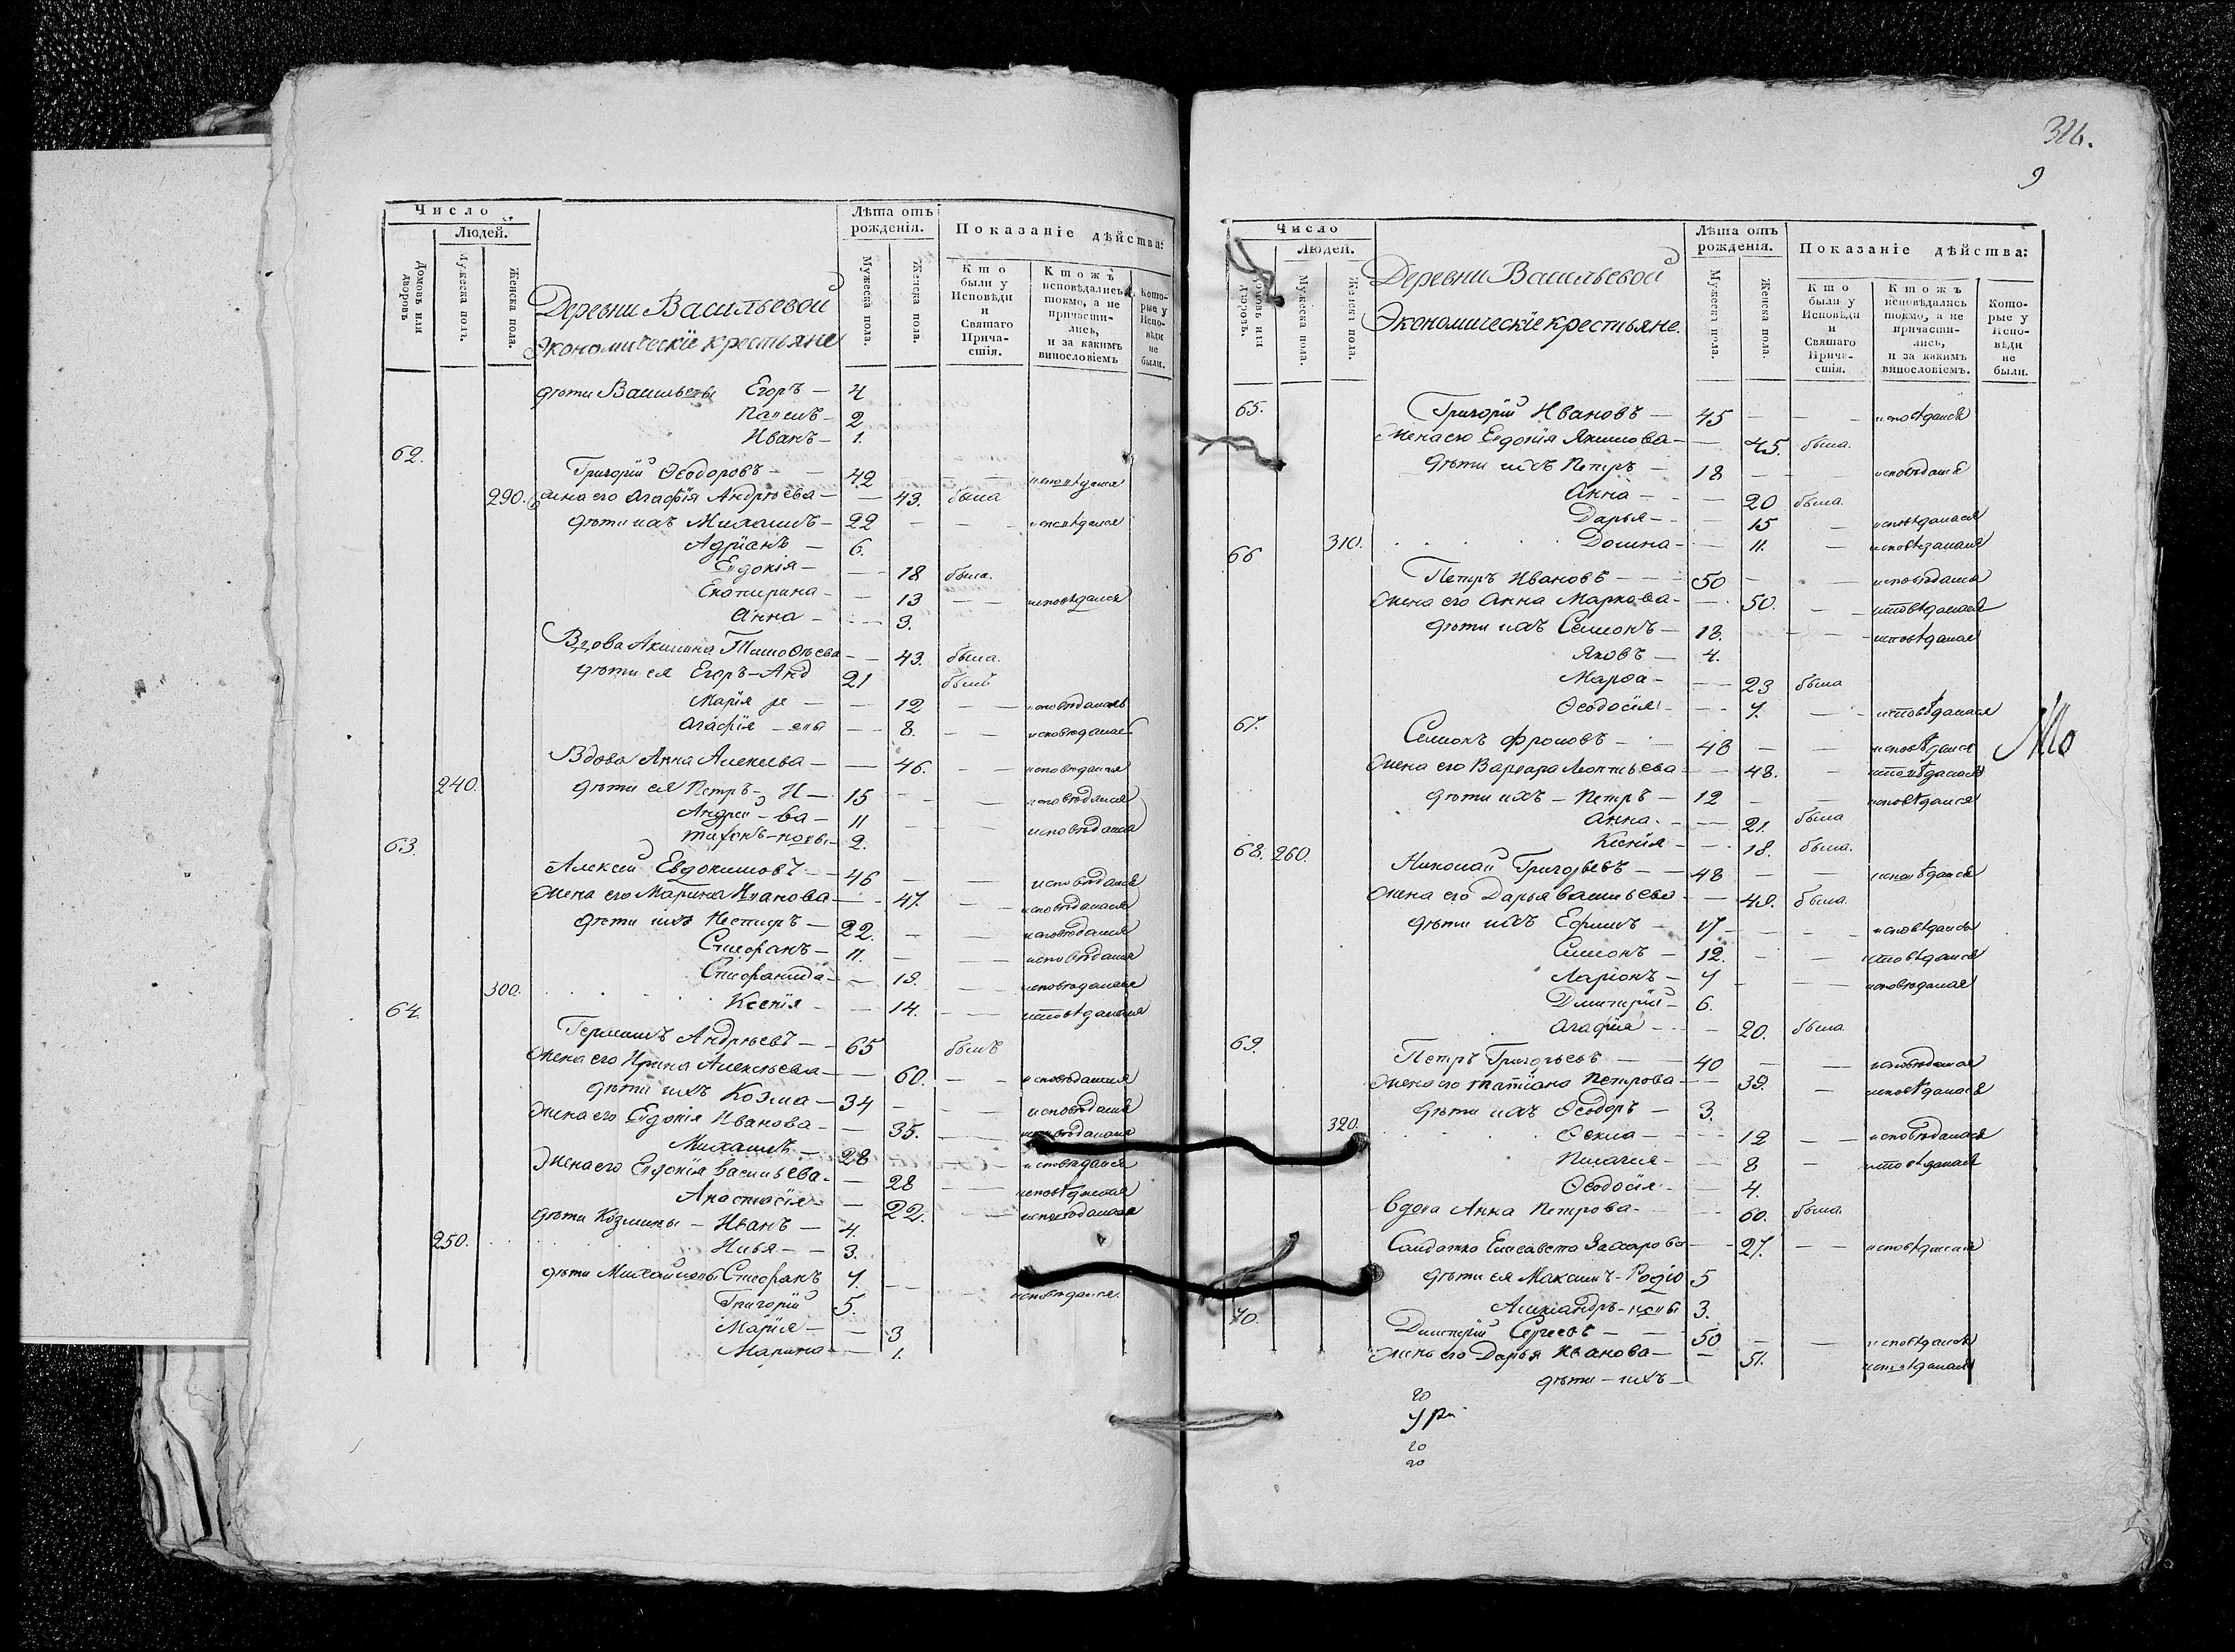 Число
Людей.
Домовъ или дворовъ
Мужеска полъ.
Женска пола.
Лѣта отъ рожденія.
Мужеска пола.
Женска пола.
Показаніе дѣйства:
Кто были у Исповѣди и Святаго Причастія.
Ктожъ исповѣдались токмо, а не причастились, и за какимъ винословіемъ
Которые у Исповѣди не были.
Деревни Васильевой
Экономическіе крестьяне
дѣти Васильевы Егоръ — 4
Павелъ — 2
Иванъ — 1.
62.
Григорій Ѳеодоровъ — 42 — — исповѣдался
290. жена его Агафія Андрѣева — — 43. была
дѣти ихъ Михаилъ — 22 — — исповѣдался
Адріанъ — 6.
Евдокія — — 18 была.
Екатирина — — 13 — — исповѣдалась
Анна — — 3.
Вдова Акилина Тимоѳѣева — — 43. была.
дѣти ея Егоръ — Анд 21 былъ
Марія ре — — 12 — — исповѣдалась
Агафія — евы — 8. — — исповѣдалась
Вдова Анна Алексѣева — — 46. — — исповѣдалася
240. дѣти ея Петръ — И — 15 — — исповѣдался
Андрей — ва — 11 — — исповѣдался
Тихонъ — новы — 2.
63.
Алексій Евдокимовъ — 46 — — исповѣдался
жена его Марина Иванова — — 47. — — исповѣдалася
дѣти ихъ Нестиръ — 22. — — исповѣдался
Стефанъ — 11. — — исповѣдался
Стефанида — — 19. — — исповѣдалася
300. Ксенія — — 14. — — исповѣдалася
64.
Герасимъ Андрѣевъ — 65 былъ
жена его Ирина Алексѣева — — 60. — — исповѣдалася
дѣти ихъ Козма — 34 — — исповѣдался
жена его Евдокія Иванова — — 35. — — исповѣдалася
Михаилъ — 28 — — исповѣдался
жена его Евдокія Васильева — — 28 — — исповѣдалася
Анастасія — — 22. — — исповѣдалася
дѣти Козмины — Иванъ — 4.
250. Илья — 3.
дѣти Михайловы Стефанъ 7. — — исповѣдался.
Григорій 5.
Марія — — 3
Марина — — 1.
326.
9
Число
Людей.
Домовъ или дворовъ.
Мужеска пола.
Женска пола.
Лѣта отъ рожденія.
Мужеска пола.
Женска пола.
Показаніе дѣйства:
Кто были у Исповѣди и Святаго Причастія.
Ктожъ исповѣдались токмо, а не причастились, и за какимъ винословіемъ.
Которые у Исповѣди не были.
Деревни Васильевой
Экономическіе крестьяне.
65. Григорій Ивановъ — 45 — — исповѣдался
жена его Евдокія Якимова — — 45. была.
дѣти ихъ Петръ — 18 — — исповѣдался
Анна — — 20 была.
Дарья — — 15 — исповѣдалася
310. Домна — — 11. — исповѣдалася
66
Петръ Ивановъ — 50 — — исповѣдался
жена его Анна Маркова — — 50. — — исповѣдалася
дѣти ихъ Семіонъ — 18. — — исповѣдался
Яковъ — 4.
Марѳа — — 23 была
Ѳеодосія — — 7. — — исповѣдалася
67.
Симіонъ Фроловъ — 48 — — исповѣдался
жена его Варвара Леонтьева — — 48. — исповѣдалася
дѣти ихъ — Петръ — 12 — — исповѣдался
Анна — — 21. была
Ксенія — — 18. была.
68. 260. Николай Григорьевъ — 48 — — исповѣдался
жена его Дарья Васильева — — 49. была.
дѣти ихъ Ефимъ — 17 — — исповѣдался
Симіонъ — 12. — — исповѣдался
Ларіонъ — 7 — — исповѣдался
Дмитрій — 6.
Агафія — — 20. была
69.
Петръ Григорьевъ — 40 — — исповѣдался
жена его Татіана Петрова — — 39. — исповѣдалася
дѣти ихъ Ѳеодоръ — 3.
320. Ѳекла — — 12 — — исповѣдалася
Пелагия — — 8 — исповѣдалася
Ѳеодосія — — 4.
Вдова Анна Петрова — — 60. была.
Салдатка Елисавета Захарова — — 27. — — исповѣдалася
дѣти ея Максимъ — Родіо 5
Александръ — новы 3.
70.
Дмитрій Сергеевъ — 50 — — исповѣдался
жена его Дарья Иванова — — 51. исповѣдалася
дѣти — ихъ —
20
20
20